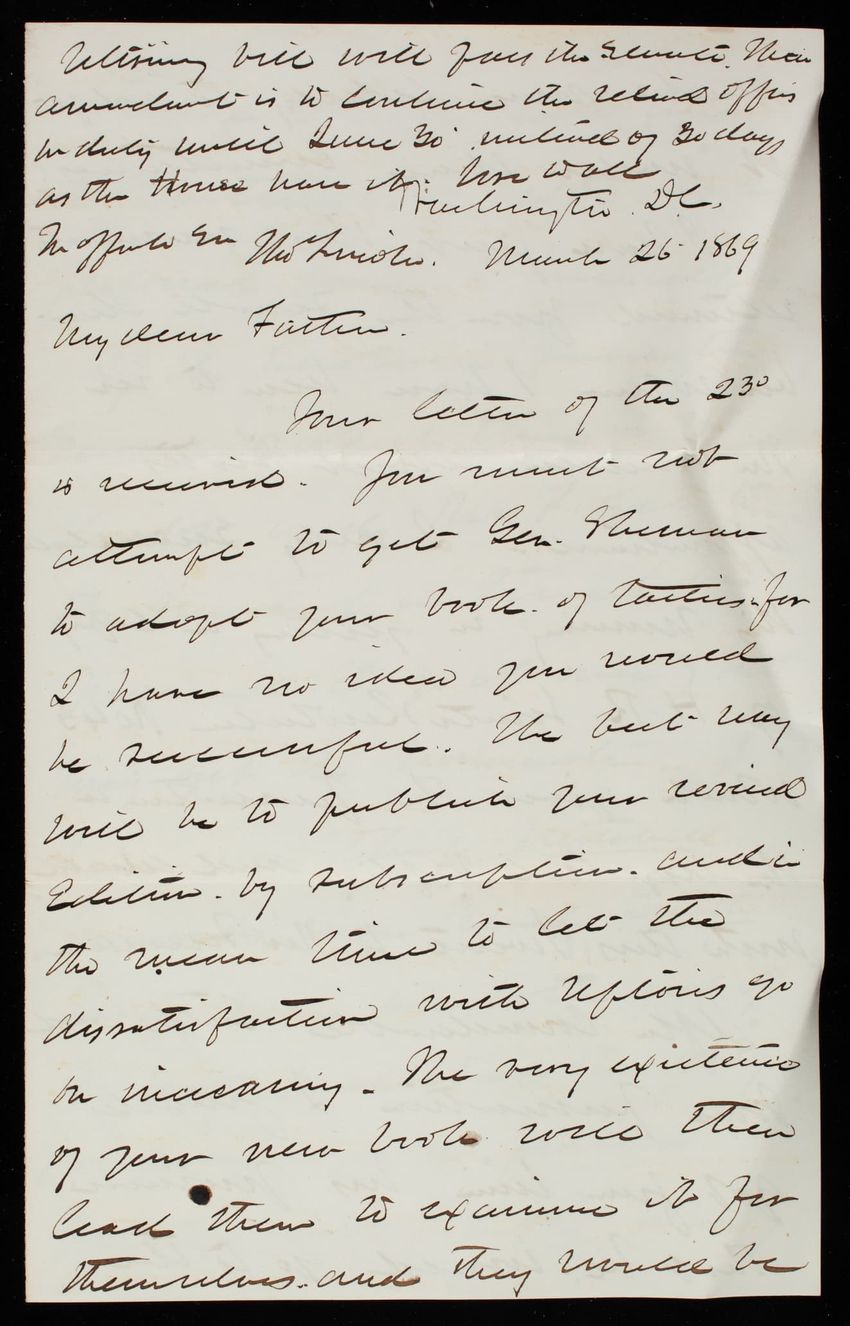 retiring bill will pass the Senate. Their
amendment is to continue the retired officers
on duty until June 30 instead of 30 days
as the House have it.
Washington D.C.
March 26 1869
My dear Father.
Your letter of the 23d
is received. You must not
attempt to get Gen. Sherman
to adopt your book of tactics for
I have no idea you would
be successful. The best way
will be to publish your revised
Edition. by subscription. and in
the mean time to let the
dissatisfaction with Uptons go
on increasing. The very existence
of your new book will then
lead them to examine it for
themselves. and they would be